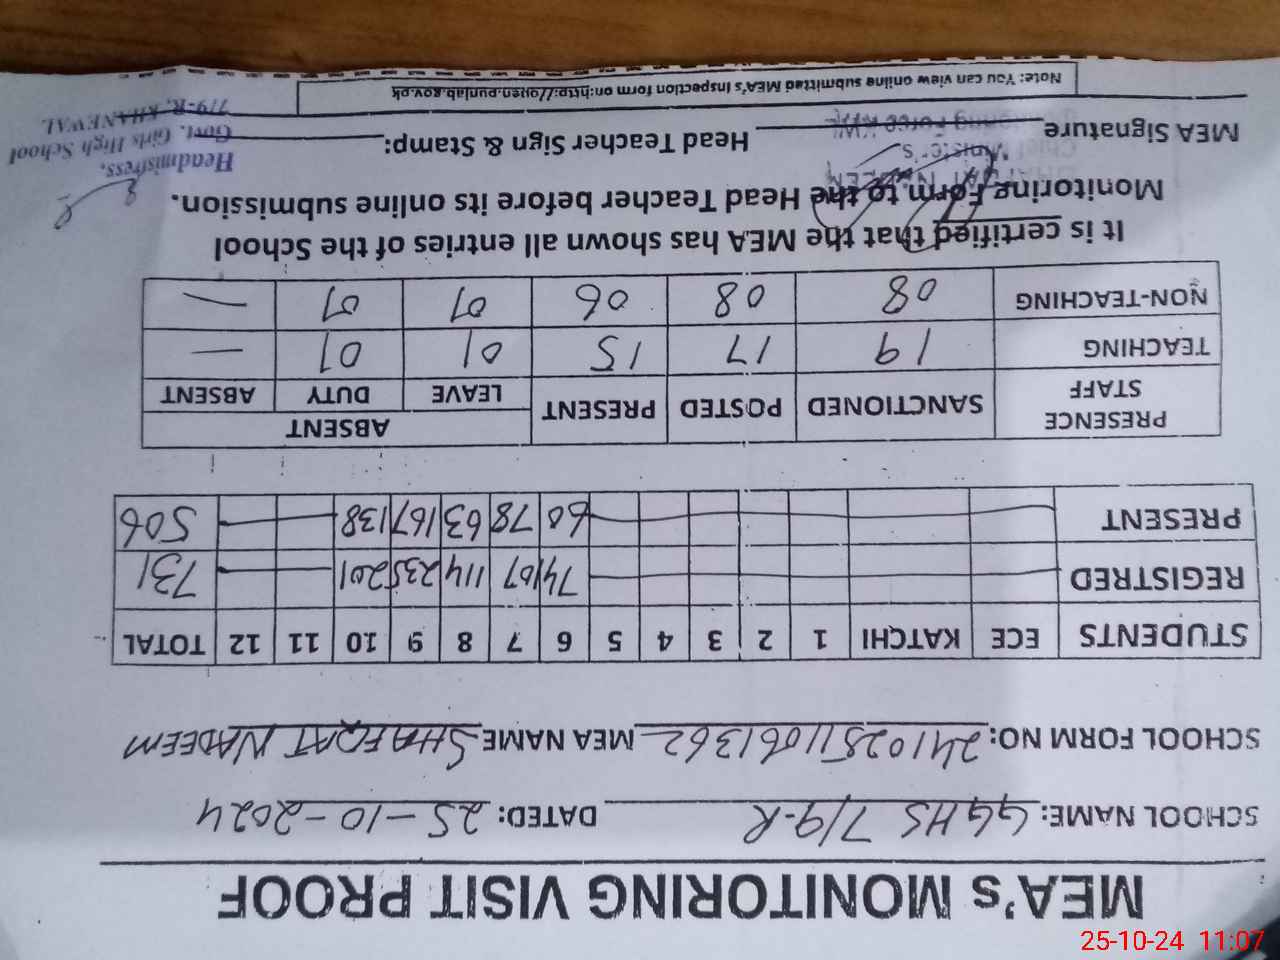 MEA's MONITORING VISIT PROOF
SCHOOL NAME: GGHS 7/9-R DATED: 25-10-2024
SCHOOL FORM NO: 24102511061362 MEA NAME SHAFQAT NADEEM
STUDENTS ECE KATCHI 1 2 3 4 5 6 7 8 9 10 11 12 TOTAL
REGISTRED 74 107 114 235 201 731
PRESENT 60 78 63 167 138 506
PRESENCE STAFF SANCTIONED POSTED PRESENT ABSENT
LEAVE DUTY ABSENT
TEACHING 19 17 15 01 01 —
NON-TEACHING 08 08 06 01 01 —
It is certified that the MEA has shown all entries of the School
Monitoring Form to the Head Teacher before its online submission.
SHAFQAT NADEEM
Chief Minister's
Monitoring Force KWL
MEA Signature Head Teacher Sign & Stamp:
Headmistress,
Govt. Girls High School
7/9-R, KHANEWAL
Note: You can view online submitted MEA's inspection form on:http://open.punjab.gov.pk
25-10-24 11:07